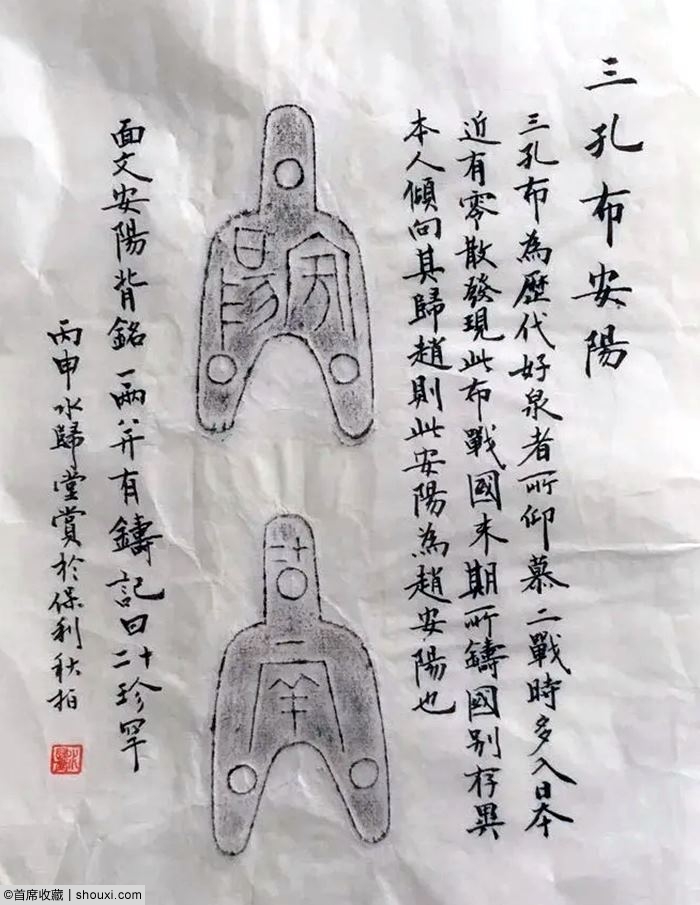 三孔布安陽
三孔布為歷代好泉者所仰慕二戰時多入日本
近有零散發現此布戰國末期所鑄國別存異
本人傾向其歸趙則此安陽為趙安陽也
安陽
二十
一兩
面文安陽背銘一兩并有鑄記曰二十珍罕
丙申水歸堂賞於保利秋拍
©首席收藏 | shouxi.com